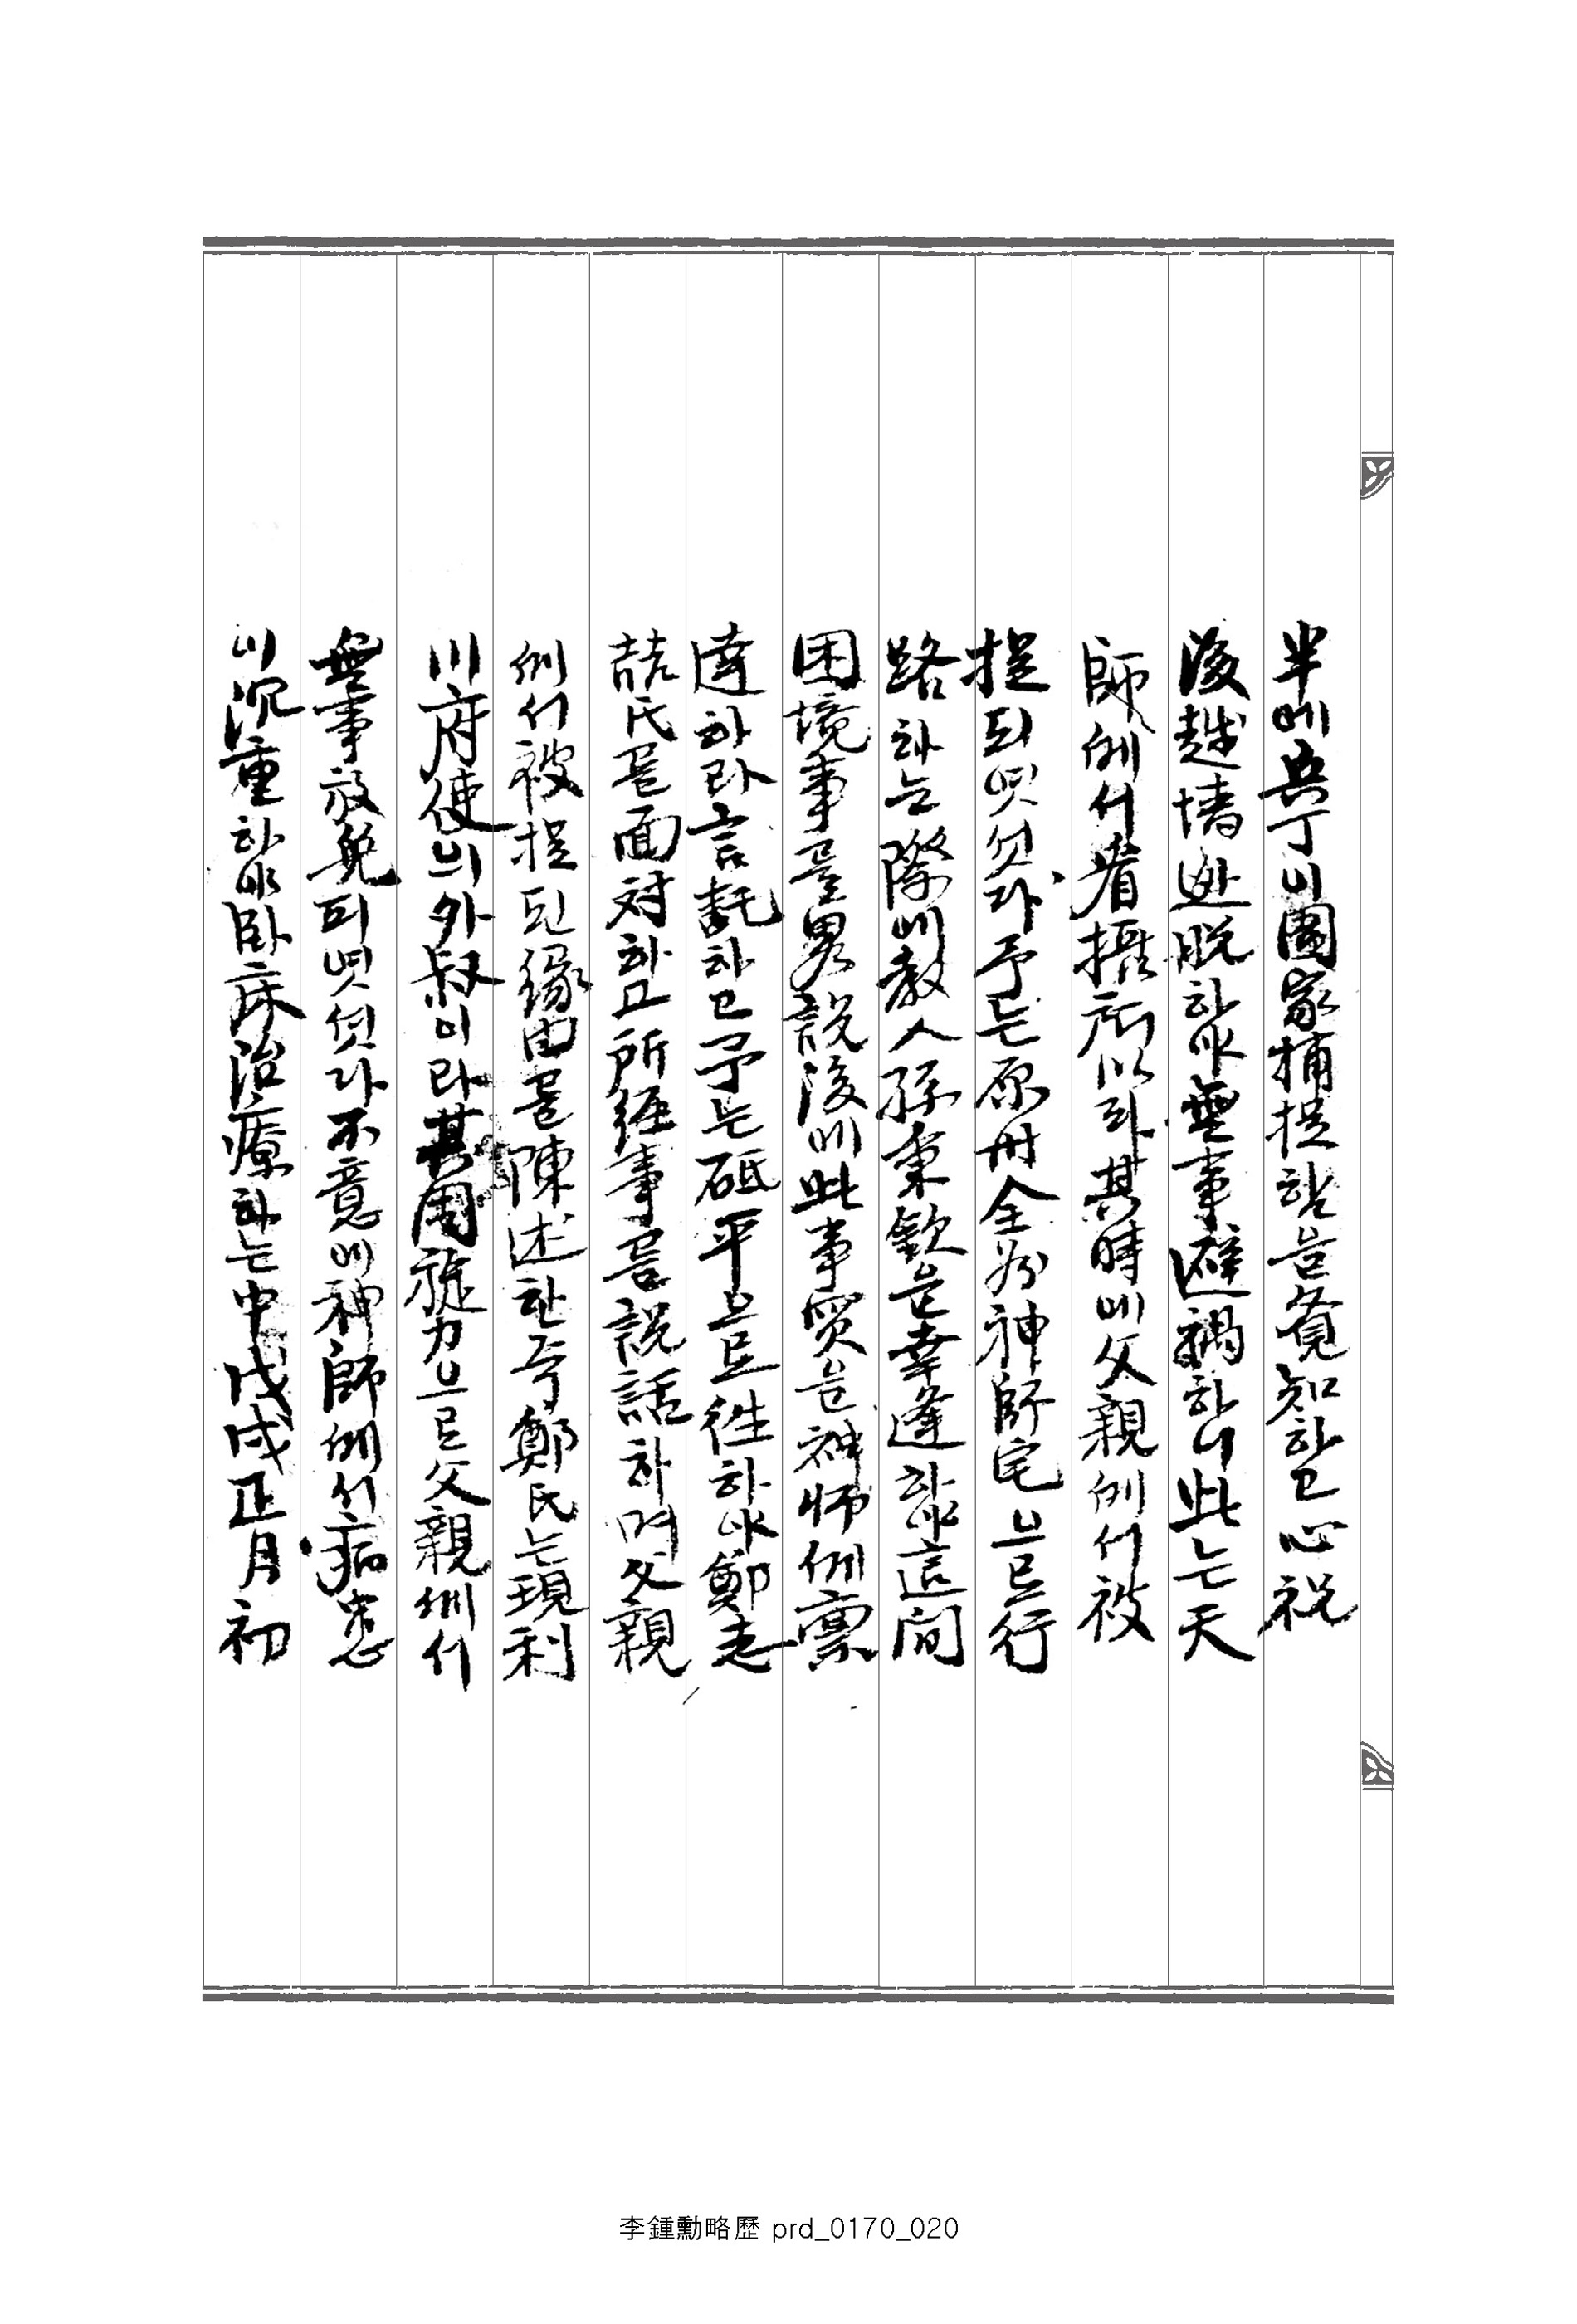 半에兵丁이圍家捕捉함을覺知하고心祝
後越墻逃脫하야無事避禍하니此는天
師께서看攝所以라其時에父親께서被
捉되엿섯다予는原州全州神師宅으로行
路하는際에敎人孫秉欽을幸逢하야這間
困境事를畧說後에此事實을神師께稟
達하라言託하고予는砥平으로往하야鄭志
喆氏를面対하고所經事를說話하며父親
께서被捉된緣由를陳述한즉鄭氏는現利
川府使의外叔이라其周旋力으로父親께서
無事放免되엿섯다不意에神師께서病患
이沉重하야臥床治療하는中戊戌正月初
李鍾勳略歷 prd_0170_020